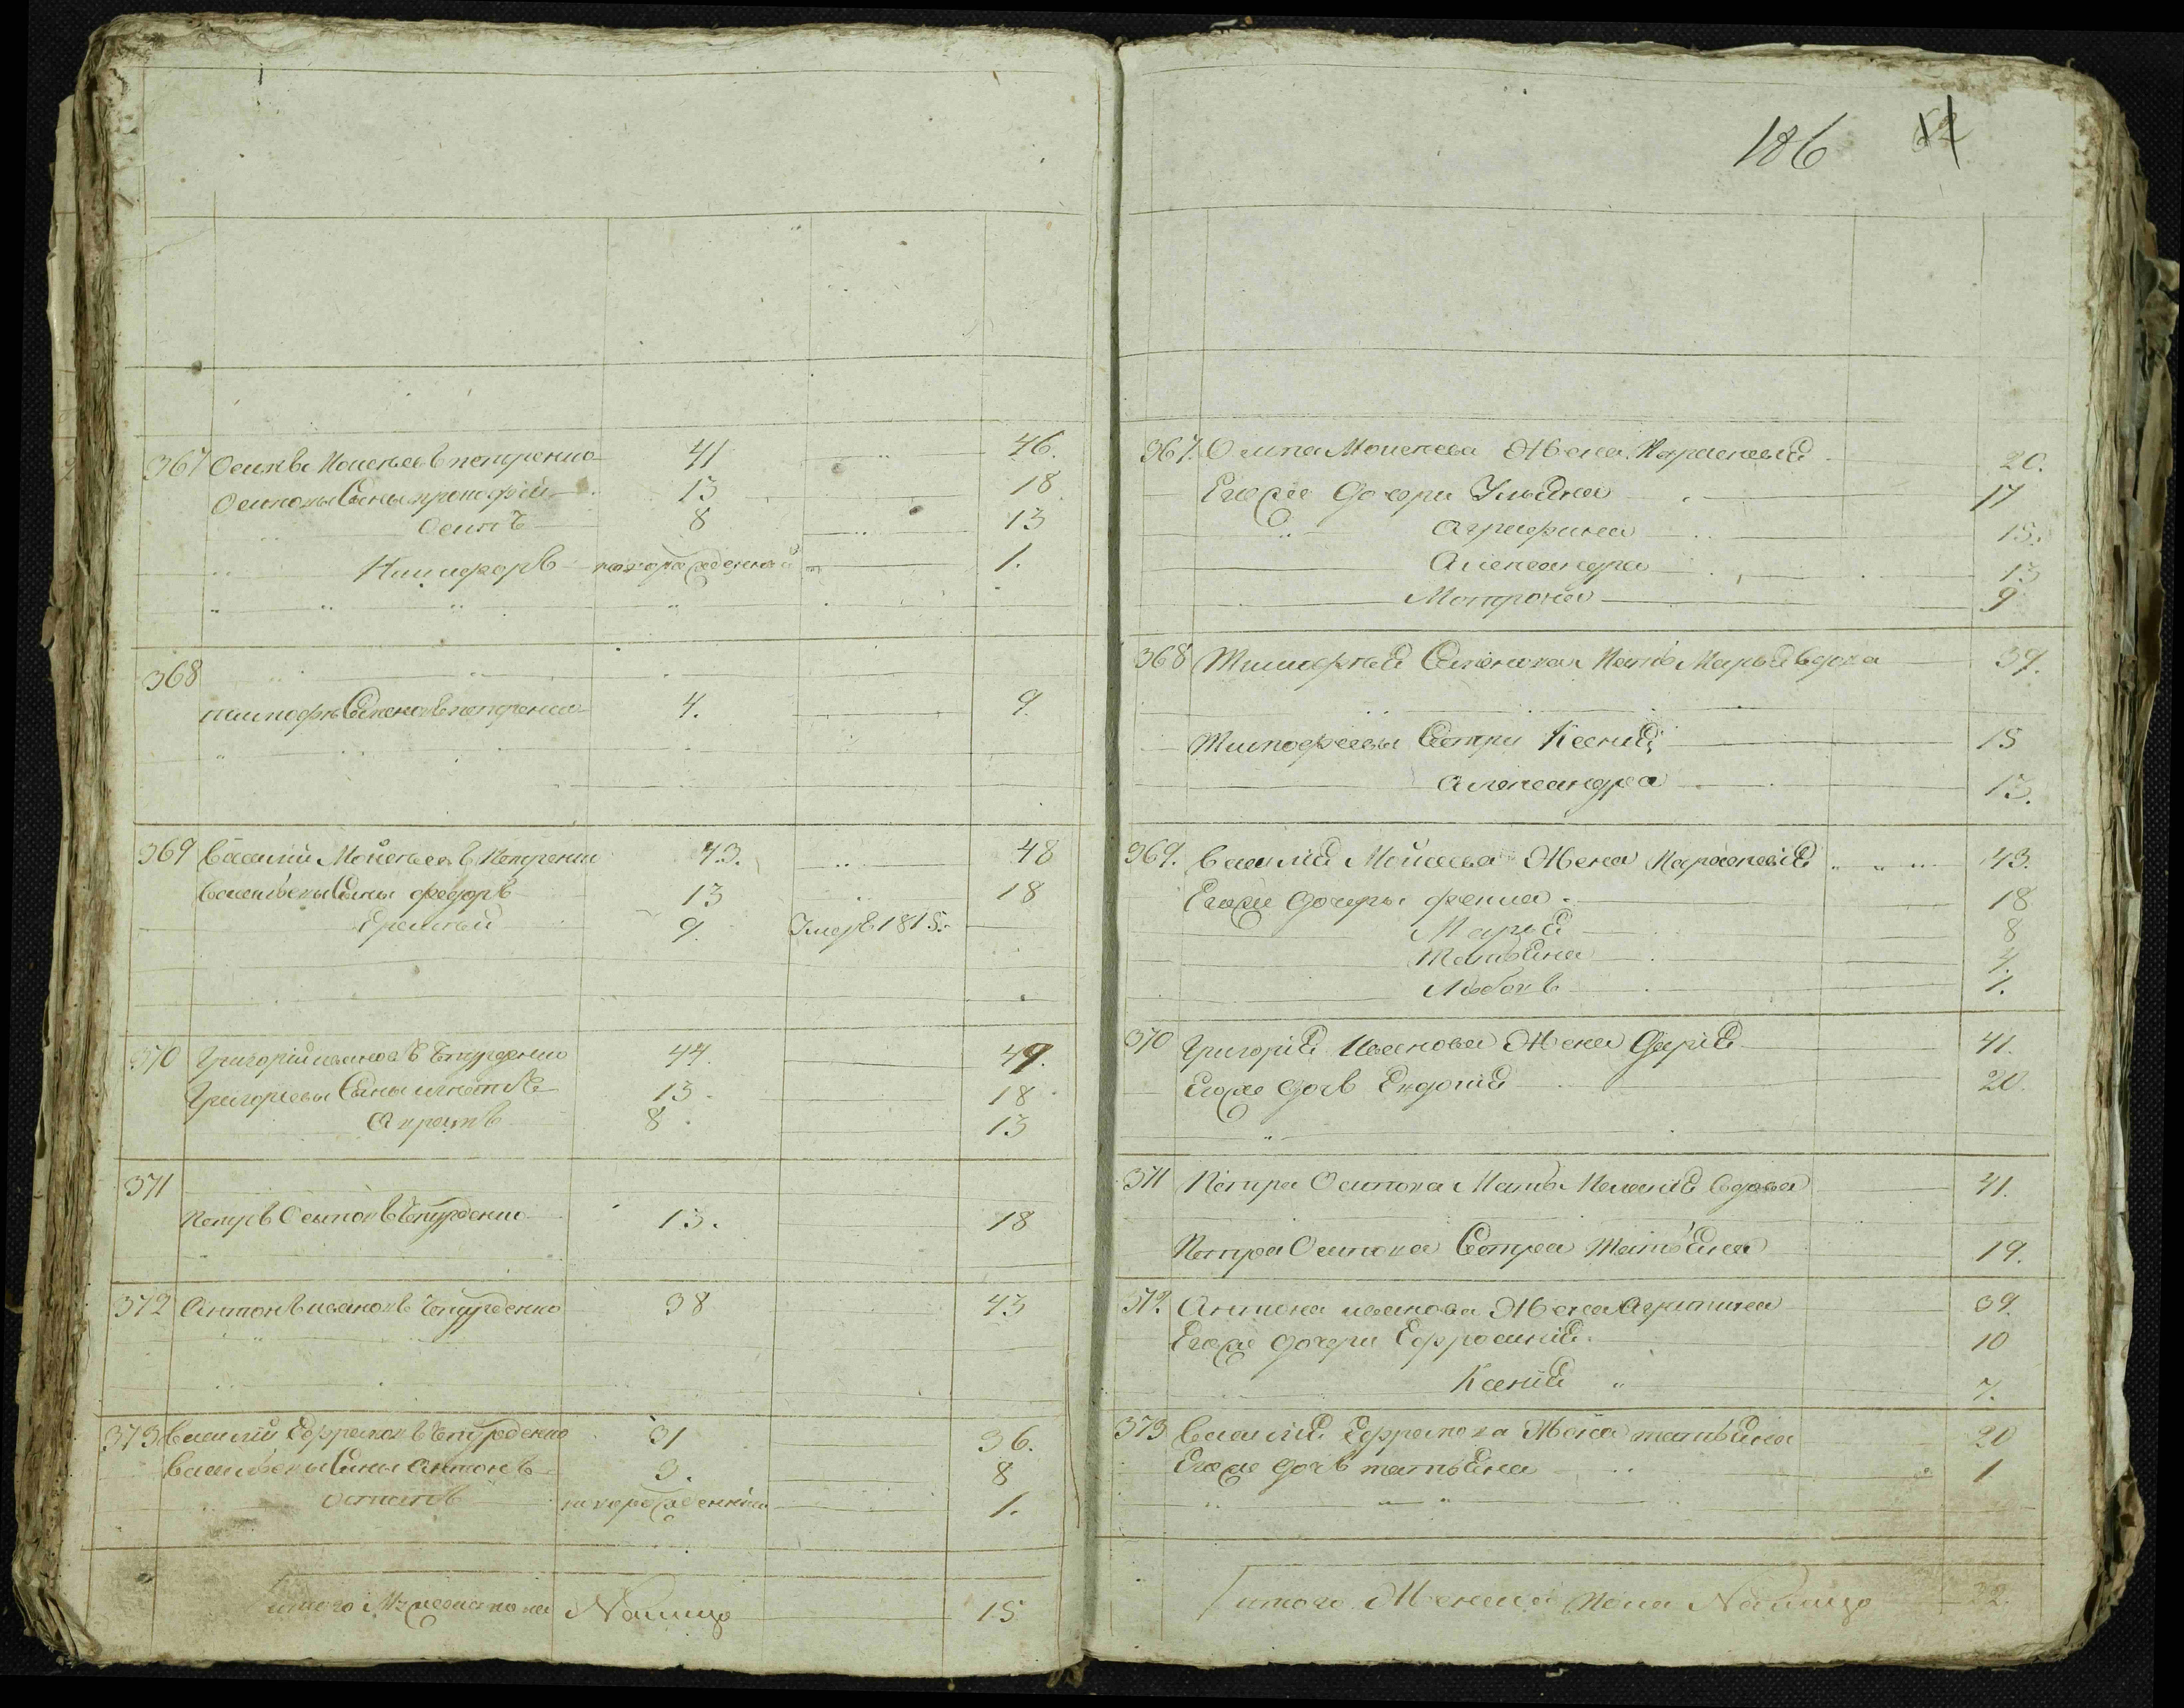 186
367 Осипъ Моисеевъ Петренко 41 46.
Осиповы Сыны Прокофий 13 18
Осипъ 8 13
Никифоръ новорожденный 1.
368
Тимофей Семеновъ Петренко 4. 9.
369 Василий Мойсеевъ Петренко 43. 48
Васильевы Сыны Федоръ 13 18
9. Умеръ 1815.
370 Григорий Ивановъ 44. 49.
Григорьевы Сыны Игнатъ 13. 18
8. 13
371
Петръ Осиповъ 13. 18
372 Антонъ Ивановъ 38 43
373 Василий Ефремовъ 31 36.
Васильевы Сыны Антонъ 3. 8
новорожденный 1.
Итого Мужеска пола Налицо 15
367. Осипа Моисеева Жена Парасковия 20.
Егоже дочери Ульяна 17
Агрифина 15.
Александра 13
Мотрона 9
368 Тимофея Семенова Мать Марья вдова 39.
Тимофеевы Сестры Ксения 15
Александра 13.
369. Василия Мойсеева Жена Парасковия 43.
Егоже дочери Фекла 18
Марья 8
Татьяна 4.
Любовь 1.
370 Григория Иванова Жена Дария 41.
Егоже дочь Евдокия 20.
371 Петра Осипова Мать Мелания вдова 41.
Петра Осипова Сестра Татьяна 19.
372. Антона Иванова Жена Агрипина 39.
Егоже дочери Ефросиния 10
Ксения 7.
373 Василия Ефремова Жена Татьяна 20
Егоже дочь Татьяна 1
Итого Женска Пола Налицо 22.